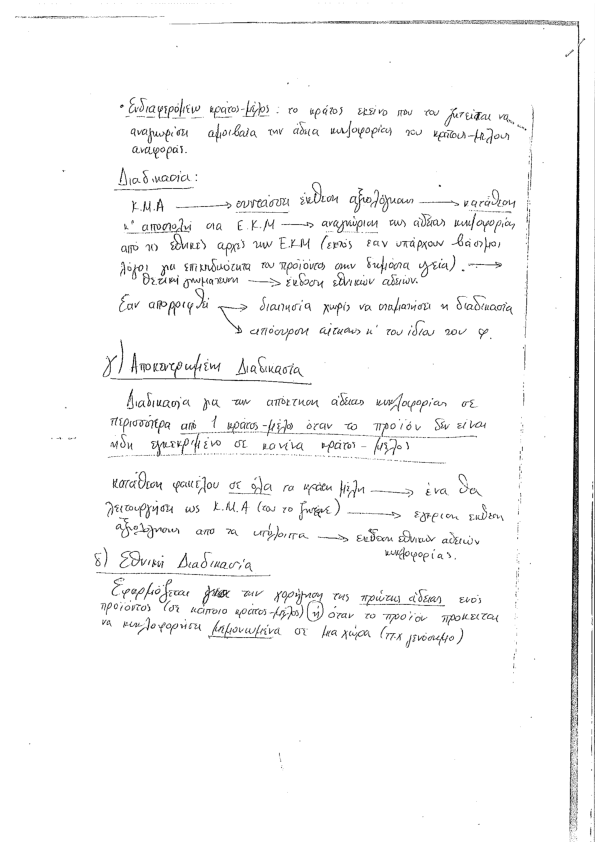 • Ενδιαφερόμενο κράτος-μέλος : το κράτος εκείνο που του ζητείται να
αναγνωρίσει αμοιβαία την άδεια κυκλοφορίας του κράτους-μέλους
αναφοράς.
Διαδικασία:
Κ.Μ.Α → συντάσσει έκθεση αξιολόγησης → κατάθεση
κ' αποστολή στα Ε.Κ.Μ → αναγνώριση της άδειας κυκλοφορίας
από τις εθνικές αρχές των Ε.Κ.Μ (εκτός εαν υπάρχουν βάσιμοι
λόγοι για επικινδυνότητα του προϊόντος στην δημόσια υγεία). →
θετική γνωμάτευση → έκδοση εθνικών αδειών.
Εαν απορριφθεί → διαιτησία χωρίς να σταματήσει η διαδικασία
→ απόσυρση αίτησης κ' του ίδιου του φ.
γ) Αποκεντρωμένη Διαδικασία
Διαδικασία για την απόκτηση άδειας κυκλοφορίας σε
περισσότερα από 1 κράτος-μέλο όταν το προϊόν δεν είναι
ήδη εγκεκριμένο σε κανένα κράτος-μέλος
κατάθεση φακέλου σε όλα τα κράτη μέλη → ένα θα
λειτουργήσει ως Κ.Μ.Α (του το ζητάμε) → έγκριση έκθεση
αξιολόγησης από τα υπόλοιπα → έκδοση εθνικών αδειών
κυκλοφορίας.
δ) Εθνική Διαδικασία
Εφαρμόζεται για την χορήγηση της πρώτης άδειας ενός
προϊόντος (σε κάποιο κράτος-μέλος) ή όταν το προϊον προκειται
να κυκλοφορήσει μεμονωμένα σε μια χώρα (π.χ γενόσημο)